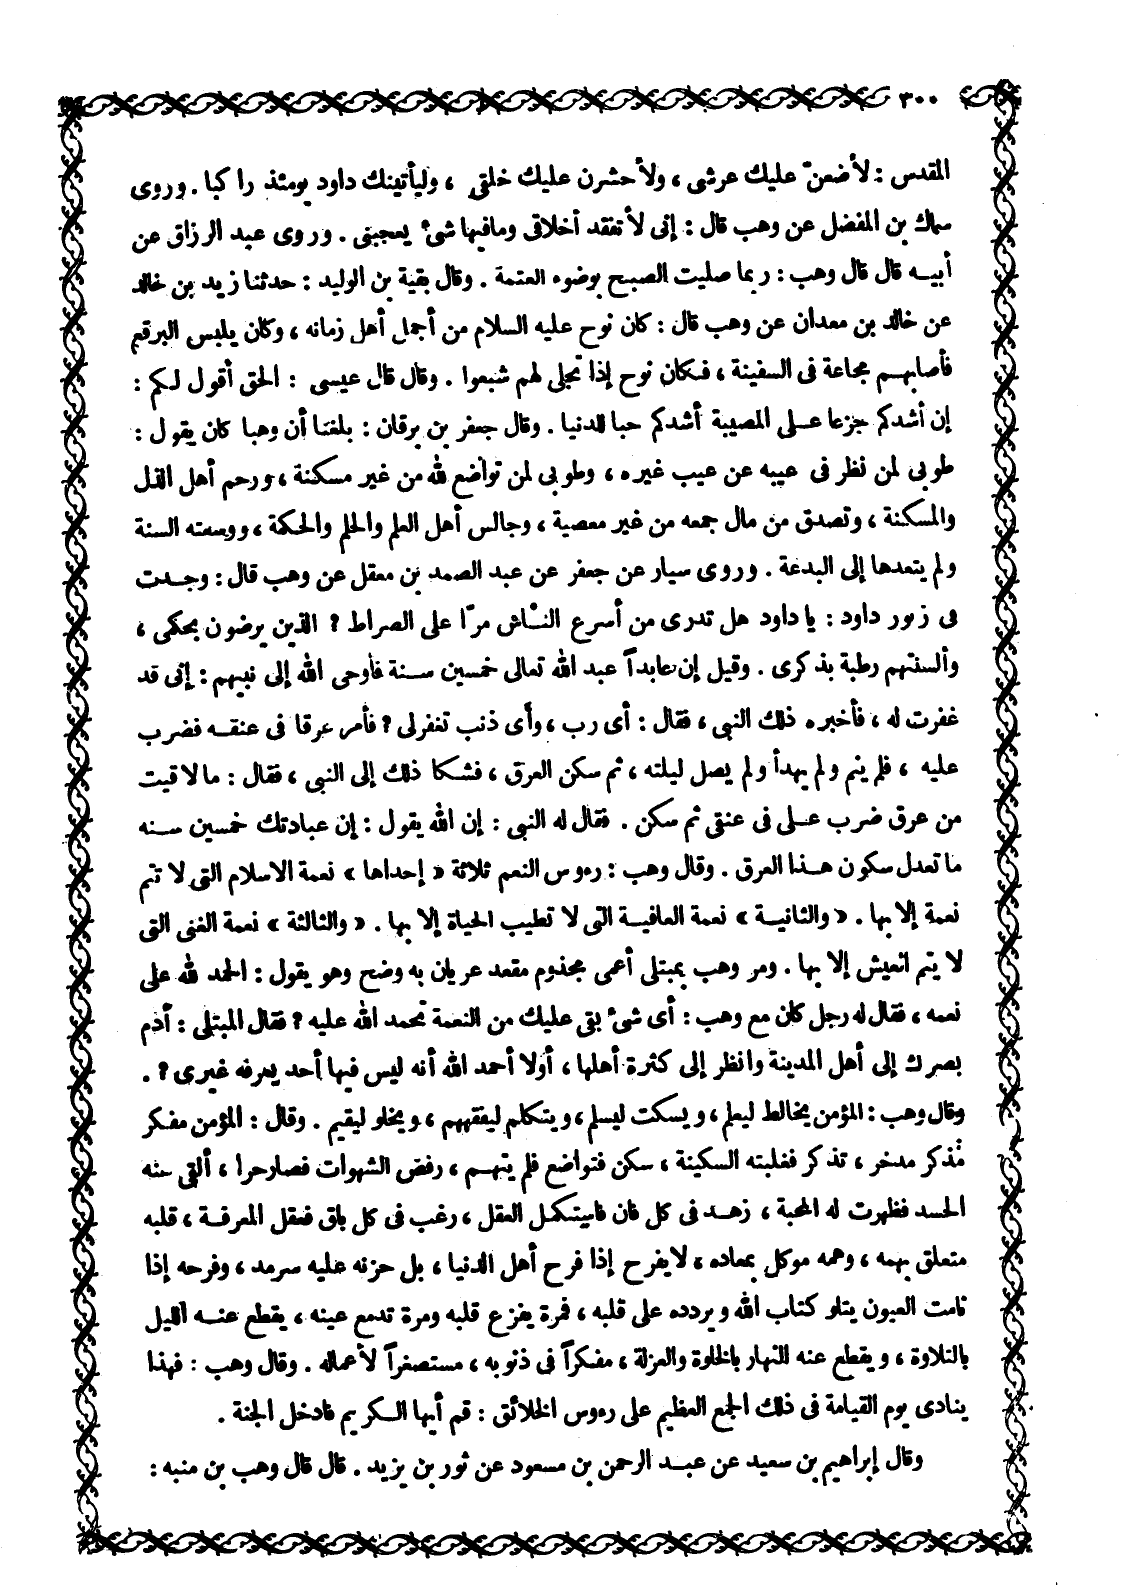 ٣٠٠
المقدس : لأضعنّ عليك عرشى ، ولأحشرن عليك خلقى ، وليأتينك داود يومئذ راكبا . وروى
سماك بن المفضل عن وهب قال : إنى لأتفقد أخلاقى ومافيها شئ يعجبنى . وروى عبد الرزاق عن
أبيه قال قال وهب : ربما صليت الصبح بوضوء العتمة . وقال بقية بن الوليد : حدثنا زيد بن خالد
عن خالد بن معدان عن وهب قال : كان نوح عليه السلام من أجمل أهل زمانه ، وكان يلبس البرقع
فأصابهم مجاعة فى السفينة ، فكان نوح إذا تجلى لهم شبعوا . وقال قال عيسى : الحق أقول لكم :
إن أشدكم جزعا على المصيبة أشدكم حبا للدنيا . وقال جعفر بن برقان : بلغنا أن وهبا كان يقول :
طوبى لمن نظر فى عيبه عن عيب غيره ، وطوبى لمن تواضع لله من غير مسكنة ، ورحم أهل الذل
والمسكنة ، وتصدق من مال جمعه من غير معصية ، وجالس أهل العلم والحلم والحكمة ، ووسعته السنة
ولم يتعدها إلى البدعة . وروى سيار عن جعفر عن عبد الصمد بن معقل عن وهب قال : وجدت
فى زبور داود : يا داود هل تدرى من أسرع النـّاس مرّا على الصراط ? الذين يرضون بحكمى ،
وألسنتهم رطبة بذكرى . وقيل إن عابداً عبد الله تعالى خمسين سنة فأوحى الله إلى نبيهم : إنى قد
غفرت له ، فأخبره ذلك النبى ، فقال : أى رب ، وأى ذنب تغفرلى ? فأمر عرقا فى عنقه فضرب
عليه ، فلم ينم ولم يهدأ ولم يصل ليلته ، ثم سكن العرق ، فشكا ذلك إلى النبى ، فقال : مالاقيت
من عرق ضرب على فى عنقى ثم سكن . فقال له النبى : إن الله يقول : إن عبادتك خمسين سنه
ما تعدل سكون هذا العرق . وقال وهب : رءوس النعم ثلاثة « إحداها » نعمة الاسلام التى لا تتم
نعمة إلا بها . « والثانية » نعمة العافية التى لا تطيب الحياة إلا بها . « والثالثة » نعمة الغنى التى
لا يتم العيش إلا بها . ومر وهب بمبتلى أعمى مجذوم مقعد عريان به وضح وهو يقول : الحمد لله على
نعمه ، فقال له رجل كان مع وهب : أى شئ بقى عليك من النعمة تحمد الله عليه ? فقال المبتلى : أدم
بصرك إلى أهل المدينة وانظر إلى كثرة أهلها ، أولا أحمد الله أنه ليس فيها أحد يعرفه غيرى ? .
وقال وهب : المؤمن يخالط ليعلم ، ويسكت ليسلم ، ويتكلم ليفهم ، ويخلو ليقيم . وقال : المؤمن مفكر
مُذكر مدخر ، تذكر فغلبته السكينة ، سكن فتواضع فلم يتهم ، رفض الشهوات فصارحرا ، ألقى عنه
الحسد فظهرت له المحبة ، زهد فى كل فان فاستكمل العقل ، رغب فى كل باق فعقل المعرفة ، قلبه
متعلق بهمه ، وهمه موكل بمعاده ، لايفرح إذا فرح أهل الدنيا ، بل حزنه عليه سرمد ، وفرحه إذا
نامت العيون يتلو كتاب الله ويردده على قلبه ، فمرة يفزع قلبه ومرة تدمع عينه ، يقطع عنه الليل
بالتلاوة ، ويقطع عنه النهار بالخلوة والعزلة ، مفكراً فى ذنوبه ، مستصغراً لأعماله . وقال وهب : فهذا
ينادى يوم القيامة فى ذلك الجمع العظيم على رءوس الخلائق : قم أيها الكريم فادخل الجنة .
وقال إبراهيم بن سعيد عن عبد الرحمن بن مسعود عن ثور بن يزيد . قال قال وهب بن منبه :